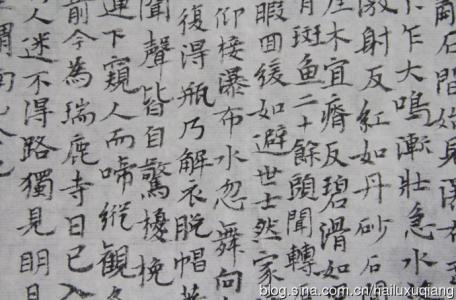 石間始見瀑布
乍大鳴漸壯急水
激射反紅如丹砂石
崖木宜瘠反碧滑如
斑魚二十餘頭聞轉
暇回緩如避世士然家
仰接瀑布水忽舞向
復得瓶乃解衣脫帽著
聞聲皆自驚擾挽
連下窺人而啼縱觀
前今為瑞鹿寺日已入
人迷不得路獨見明月
blog.sina.com.cn/hailuxuqiang